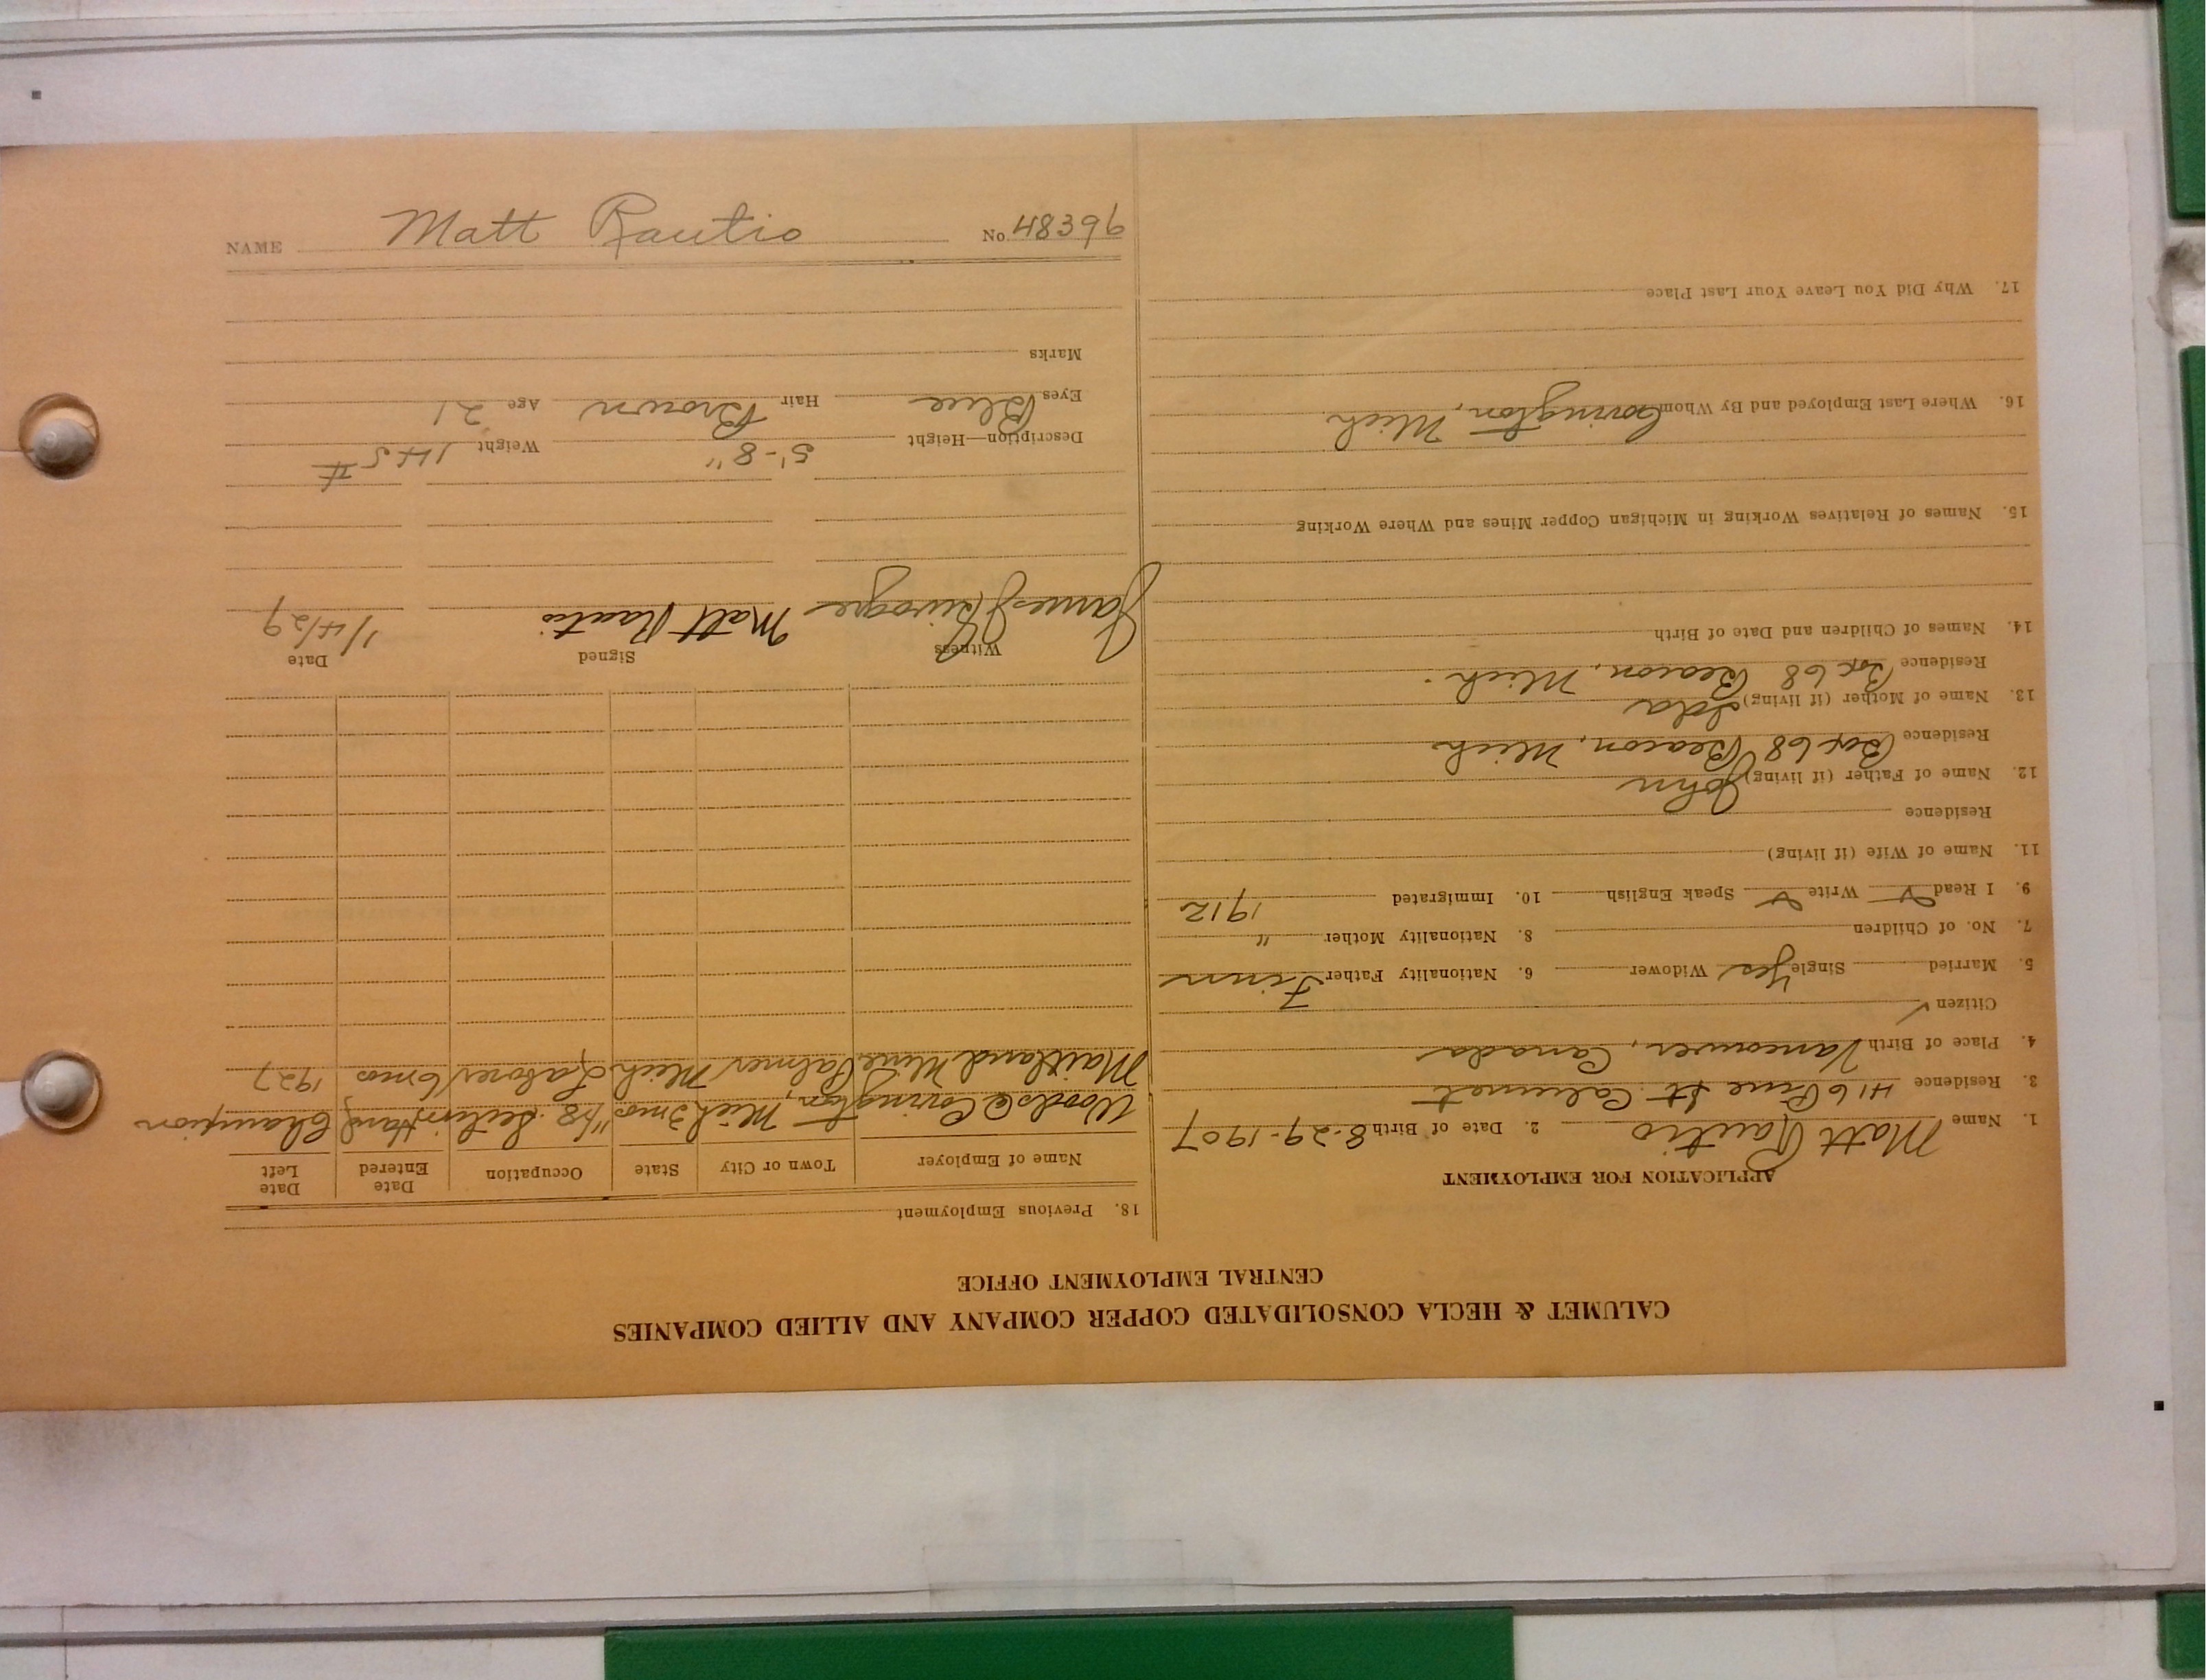 CALUMET & HECLA CONSOLIDATED COPPER COMPANY AND ALLIED COMPANIES
CENTRAL EMPLOYMENT OFFICE
APPLICATION FOR EMPLOYMENT
1. Name Matt Rautio 2. Date of Birth 8-29-1907
3. Residence 416 Pine St. Calumet
4. Place of Birth Vancouver, Canada
Citizen ✓
5. Married Single Yes Widower 6. Nationality Father Finn
7. No. of Children 8. Nationality Mother "
9. I Read ✓ Write ✓ Speak English 10. Immigrated 1912
11. Name of Wife (if living)
Residence
12. Name of Father (if living) John
Residence Box 68 Beacon, Mich
13. Name of Mother (if living) Ida
Residence Box 68 Beacon, Mich.
14. Names of Children and Date of Birth
15. Names of Relatives Working in Michigan Copper Mines and Where Working
16. Where Last Employed and By Whom Covington, Mich
17. Why Did You Leave Your Last Place
18. Previous Employment
Name of Employer Town or City State Occupation Date Entered Date Left
Woods @ Covington, Mich 3 mos Hand Champion
Maitland Mine Palmer Mich Laborer 6 mos 1927
Witness Signed Date
James Matt Rautio 1/4/29
Description—Height 5'-8" Weight 145 #
Eyes Blue Hair Brown Age 21
Marks
NAME Matt Rautio No. 48396